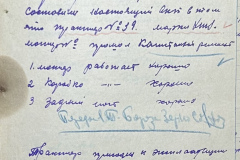 Составили настоящий акт в том
что трактор № 39. марки
мотор № прошел Капитальный ремонт
1. мотор работает хорошо
2 Коробка — хорошо
3 Задний мост хорошо
Трактор пригоден к эксплоатации